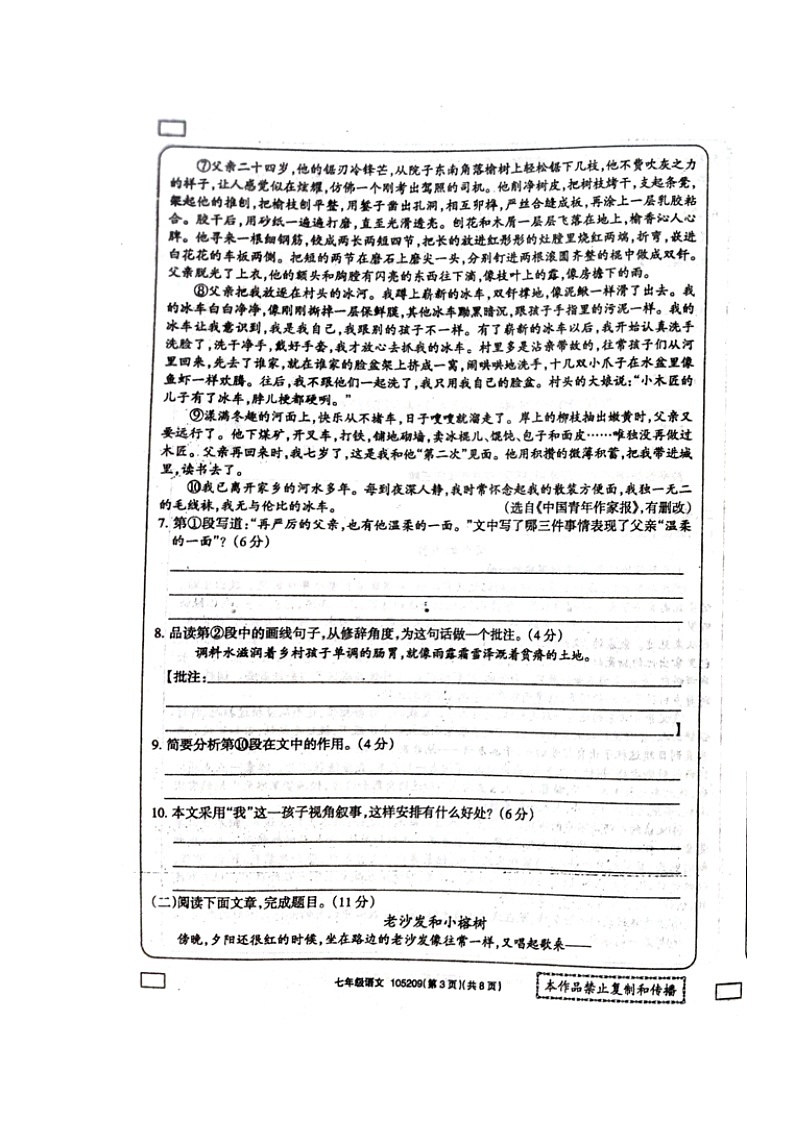 ⑦父亲二十四岁,他的锯刃冷锋芒,从院子东南角落榆树上轻松锯下几枝,他不费吹灰之力
的样子,让人感觉似在炫耀,仿佛一个刚考出驾照的司机。他削净树皮,把树枝烤干,支起条凳,
架起他的推刨,把榆枝刨平整,用錾子凿出孔洞,相互卯榫,严丝合缝成板,再涂上一层乳胶粘
合。胶干后,用砂纸一遍遍打磨,直至光滑透亮。刨花和木质一层层飞落在地上,榆香沁人心
脾。他寻来一根细钢筋,铰成两长两短四节,把长的放进红彤彤的灶膛里烧红两端,折弯,嵌进
白花花的车板两侧。把短的两节在磨石上磨尖一头,分别钉进两根滚圆齐整的棍中做成双钎。
父亲脱光了上衣,他的额头和胸膛有闪亮的东西往下滴,像枝叶上的露,像房檐下的雨。
⑧父亲把我放逐在村头的冰河。我蹲上崭新的冰车,双钎撑地,像泥鳅一样滑了出去。我
的冰车白白净净,像刚刚撕掉一层保鲜膜,其他冰车黝黑暗沉,跟孩子手指里的污泥一样。我的
冰车让我意识到,我是我自己,我跟别的孩子不一样。有了崭新的冰车以后,我开始认真洗手
洗脸了,洗干净手,戴好手套,我才放心去抓我的冰车。村里多是沾亲带故的,往常孩子们从河
里回来,先去了谁家,就在谁家的脸盆架上挤成一窝,闹哄哄地洗手,十几双小爪子在水盆里像
鱼虾一样欢腾。往后,我不跟他们一起洗了,我只用我自己的脸盆。村头的大娘说:“小木匠的
儿子有了冰车,脖儿梗都硬咧。”
⑨漾满冬趣的河面上,快乐从不堵车,日子嗖嗖就溜走了。岸上的柳枝抽出嫩黄时,父亲又
要远行了。他下煤矿,开叉车,打铁,铺地砌墙,卖冰棍儿、馄饨、包子和面皮……唯独没再做过
木匠。父亲再回来时,我七岁了,这是我和他“第二次”见面。他用积攒的微薄积蓄,把我带进城
里,读书去了。
⑩我已离开家乡的河水多年。每到夜深人静,我时常怀念起我的散装方便面,我独一无二
的毛线袜,我无与伦比的冰车。
(选自《中国青年作家报》,有删改)
7. 第①段写道:“再严厉的父亲,也有他温柔的一面。”文中写了哪三件事情表现了父亲“温柔
的一面”?(6分)
8. 品读第②段中的画线句子,从修辞角度,为这句话做一个批注。(4分)
调料水滋润着乡村孩子单调的肠胃,就像雨露霜雪泽溉着贫瘠的土地。
【批注:
】
9. 简要分析第⑩段在文中的作用。(4分)
10. 本文采用“我”这一孩子视角叙事,这样安排有什么好处?(6分)
(二)阅读下面文章,完成题目。(11分)
老沙发和小榕树
傍晚,夕阳还很红的时候,坐在路边的老沙发像往常一样,又唱起歌来——
七年级语文 105209(第3页)(共8页)
本作品禁止复制和传播